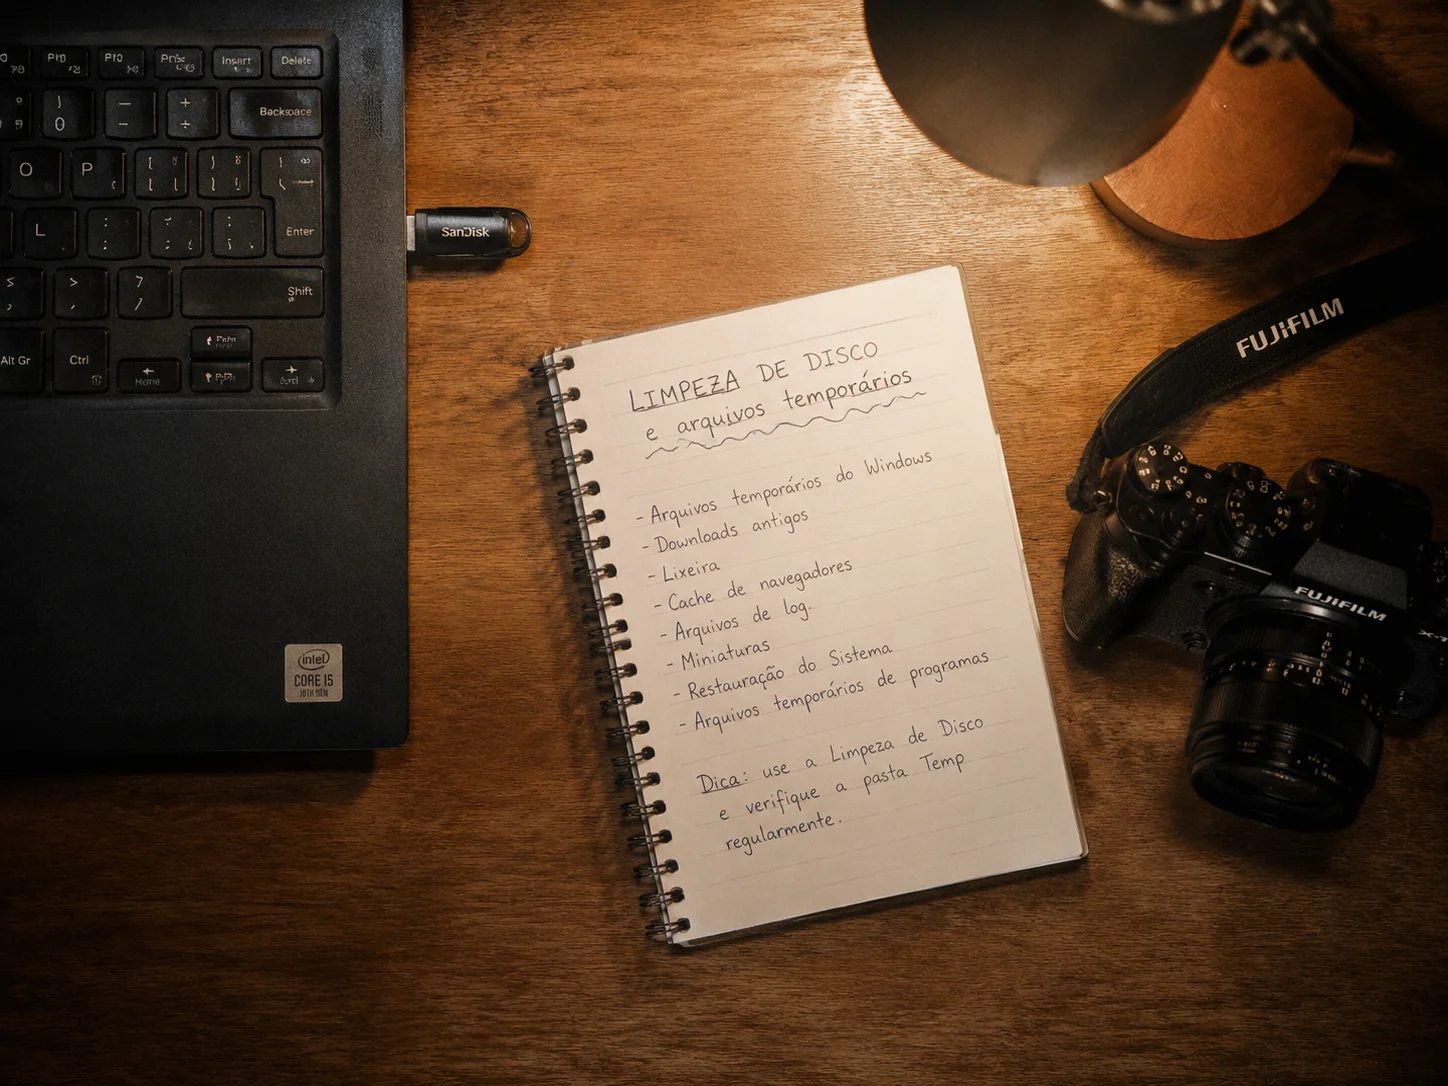 Insert
Delete
Backspace
O
P
L
Enter
Shift
Alt Gr
Ctrl
SanDisk
intel
CORE i5
LIMPEZA DE DISCO
e arquivos temporários
- Arquivos temporários do Windows
- Downloads antigos
- Lixeira
- Cache de navegadores
- Arquivos de log.
- Miniaturas
- Restauração do Sistema
- Arquivos temporários de programas
Dica: use a Limpeza de Disco
e verifique a pasta Temp
regularmente.
FUJIFILM
FUJIFILM